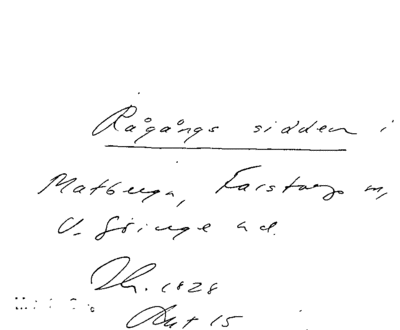 Rågångs sidden i
Matberga, Karstorp m,
V. Göinge hd.
1828
Akt 15